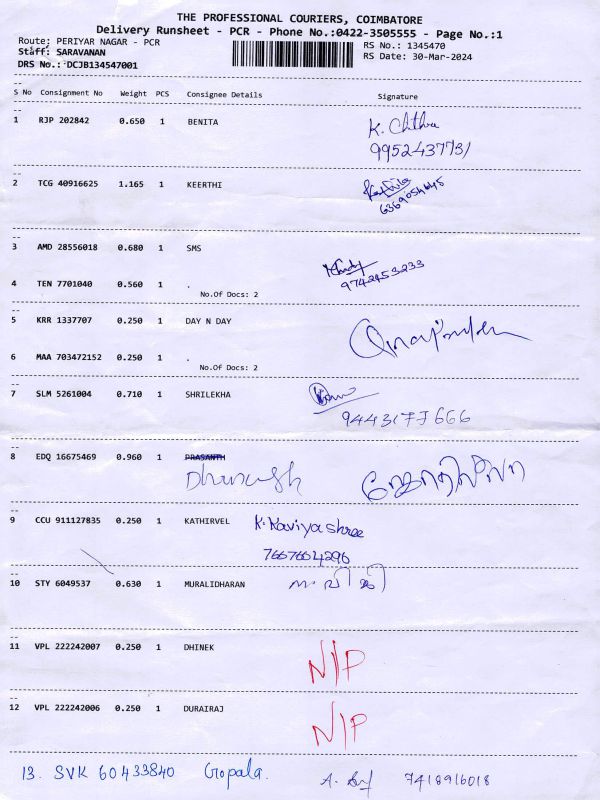 THE PROFESSIONAL COURIERS, COIMBATORE
Delivery Runsheet - PCR - Phone No.:0422-3505555 - Page No.:1
Route: PERIYAR NAGAR - PCR
RS No.: 1345470
Staff: SARAVANAN
RS Date: 30-Mar-2024
DRS No.: DCJB134547001
S No Consignment No Weight PCS Consignee Details Signature
1 RJP 202842 0.650 1 BENITA K. Chithra
9952437731
2 TCG 40916625 1.165 1 KEERTHI
3 AMD 28556018 0.680 1 SMS
9742453233
4 TEN 7701040 0.560 1 .
No.Of Docs: 2
5 KRR 1337707 0.250 1 DAY N DAY
6 MAA 703472152 0.250 1 .
No.Of Docs: 2
7 SLM 5261004 0.710 1 SHRILEKHA
9443177666
8 EDQ 16675469 0.960 1 PRASANTH
Dhanush
9 CCU 911127835 0.250 1 KATHIRVEL K. Kaviya shree
7667664296
10 STY 6049537 0.630 1 MURALIDHARAN
11 VPL 222242007 0.250 1 DHINEK N/P
12 VPL 222242006 0.250 1 DURAIRAJ N/P
13. SVK 60433840 Gopala. 7418916018